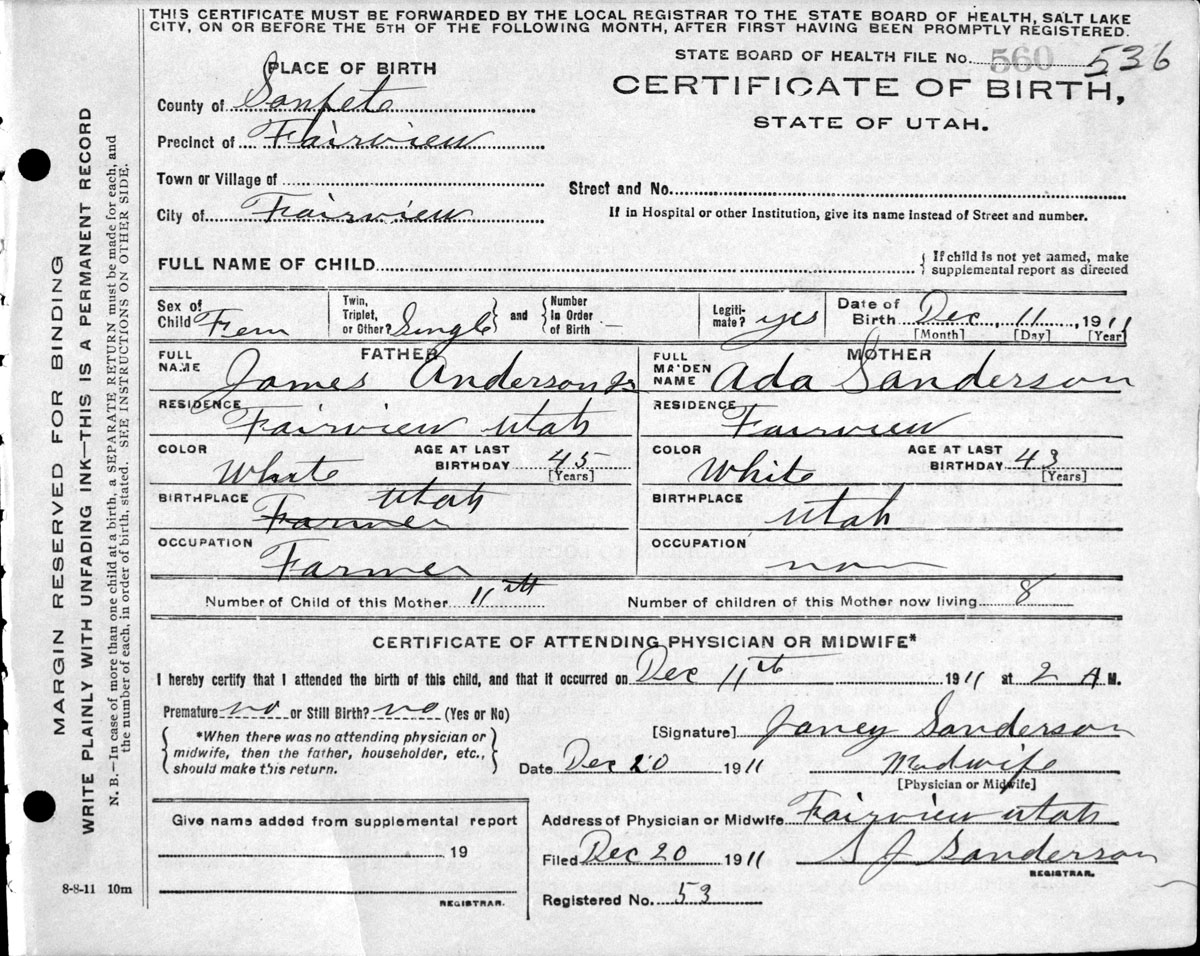 THIS CERTIFICATE MUST BE FORWARDED BY THE LOCAL REGISTRAR TO THE STATE BOARD OF HEALTH, SALT LAKE
CITY, ON OR BEFORE THE 5TH OF THE FOLLOWING MONTH, AFTER FIRST HAVING BEEN PROMPTLY REGISTERED.
STATE BOARD OF HEALTH FILE No. 560 536
PLACE OF BIRTH
CERTIFICATE OF BIRTH,
STATE OF UTAH.
County of Sanpete
Precinct of Fairview
Town or Village of
Street and No.
City of Fairview
If in Hospital or other Institution, give its name instead of Street and number.
FULL NAME OF CHILD
If child is not yet named, make
supplemental report as directed
Sex of Child Fem
Twin, Triplet, or Other? Single and Number In Order of Birth —
Legitimate? yes
Date of Birth Dec, 11, 1911
[Month] [Day] [Year]
FATHER
FULL NAME James Anderson Jr
MOTHER
FULL MAIDEN NAME Ada Sanderson
RESIDENCE Fairview Utah
RESIDENCE Fairview
COLOR White AGE AT LAST BIRTHDAY 45 [Years]
COLOR White AGE AT LAST BIRTHDAY 43 [Years]
BIRTHPLACE Farmer Utah
BIRTHPLACE Utah
OCCUPATION Farmer
OCCUPATION
Number of Child of this Mother 11th
Number of children of this Mother now living 8
CERTIFICATE OF ATTENDING PHYSICIAN OR MIDWIFE*
I hereby certify that I attended the birth of this child, and that it occurred on Dec 11th 1911 at 2 A M.
Premature no or Still Birth? no (Yes or No)
*When there was no attending physician or
midwife, then the father, householder, etc.,
should make this return.
[Signature] Janey Sanderson
Date Dec 20 1911 Midwife
[Physician or Midwife]
Give name added from supplemental report
19
REGISTRAR.
Address of Physician or Midwife Fairview Utah
Filed Dec 20 1911 S J Sanderson
REGISTRAR.
Registered No. 53
8-8-11 10m
MARGIN RESERVED FOR BINDING
WRITE PLAINLY WITH UNFADING INK—THIS IS A PERMANENT RECORD
N. B.—In case of more than one child at a birth, a SEPARATE RETURN must be made for each, and
the number of each, in order of birth, stated. SEE INSTRUCTIONS ON OTHER SIDE.